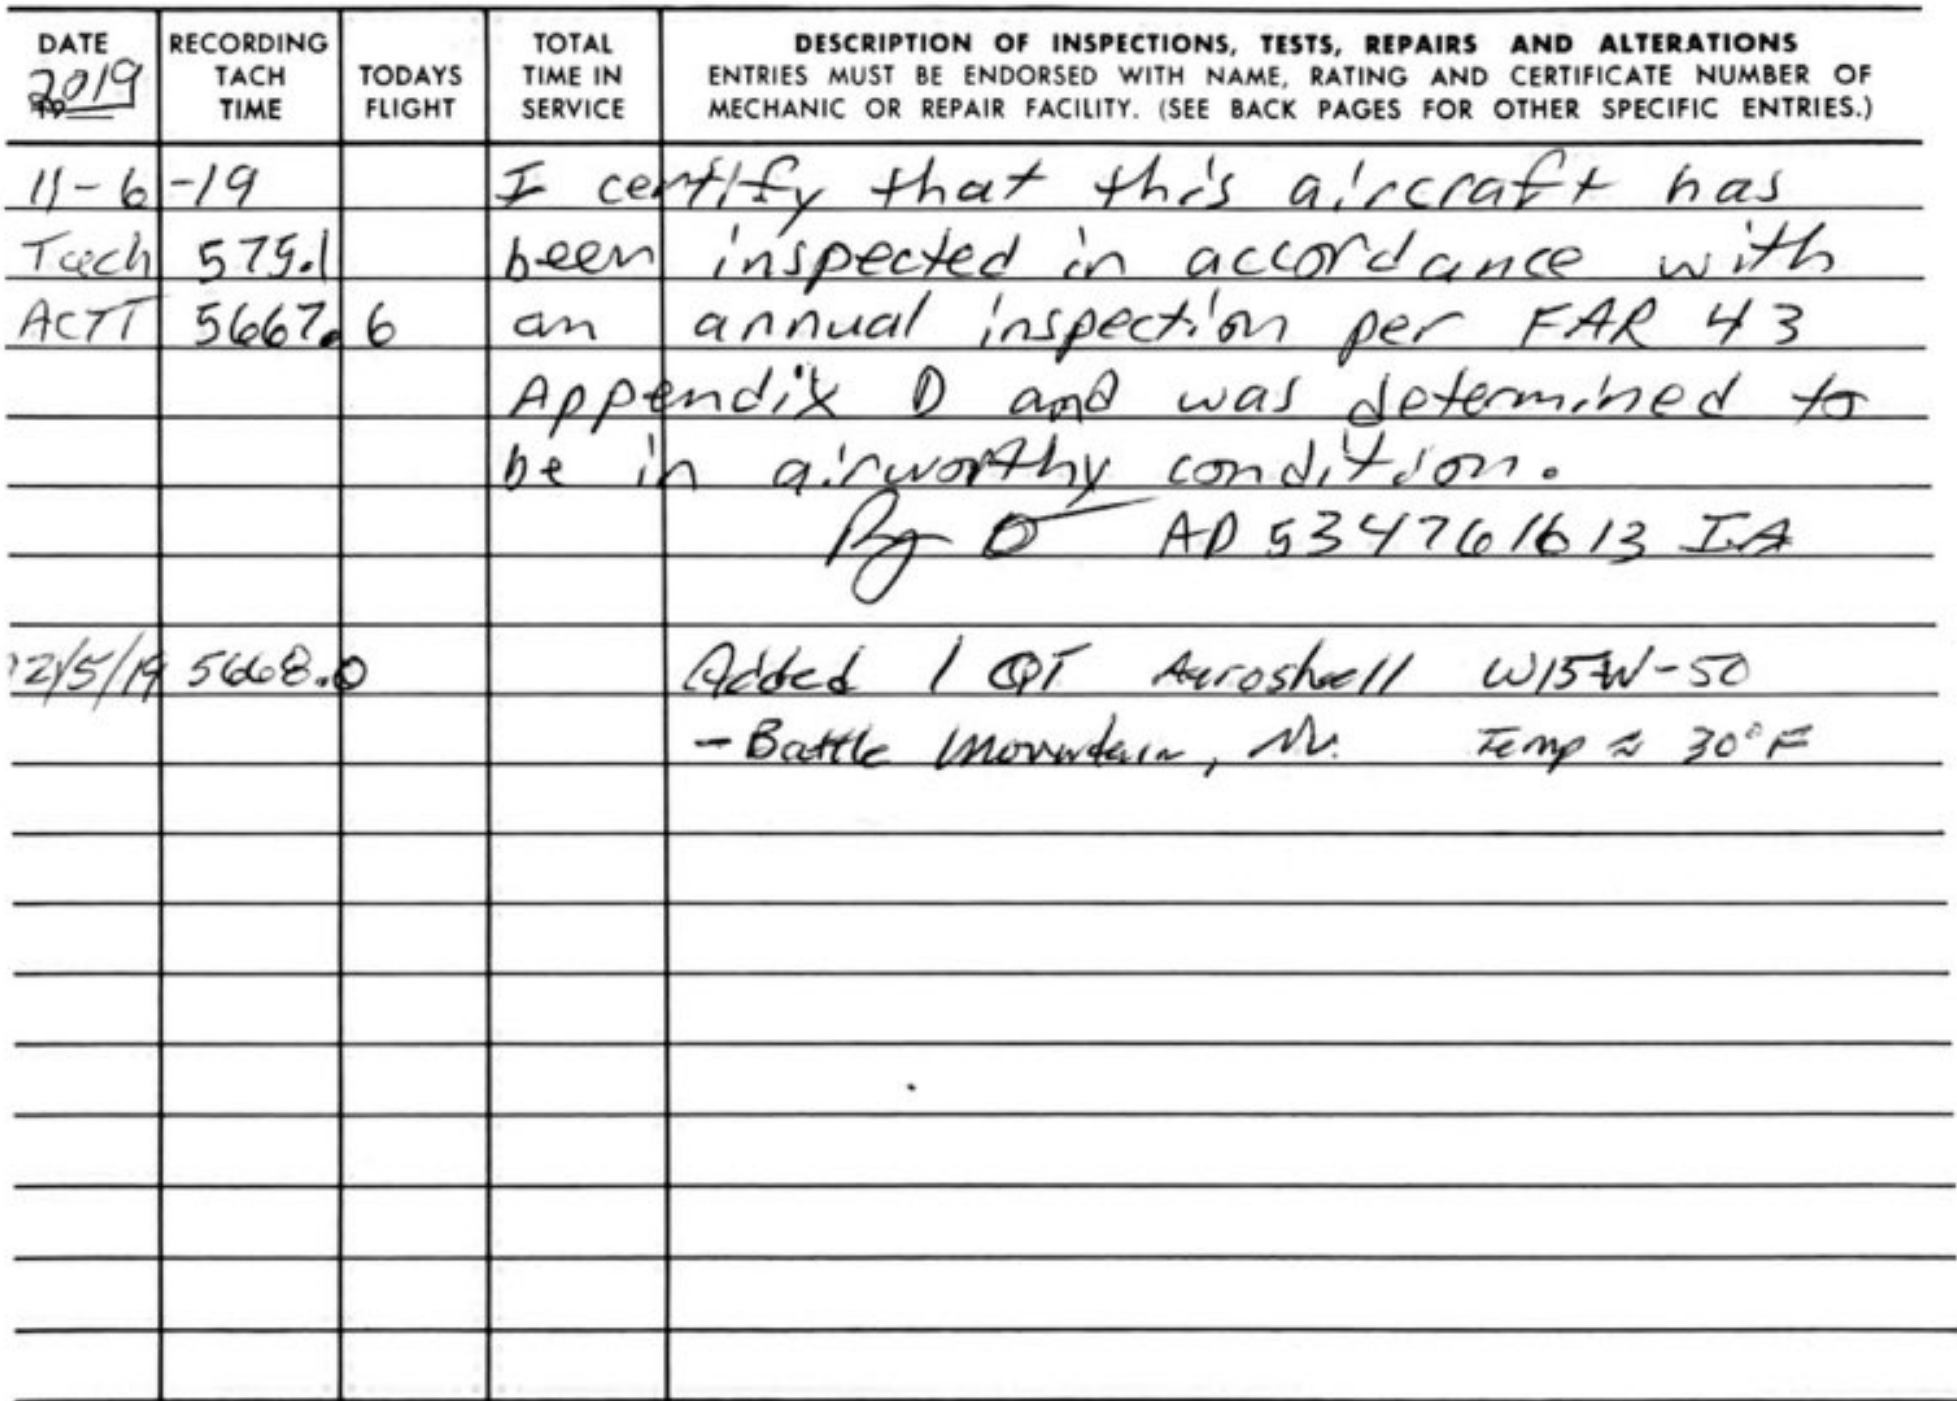 DATE RECORDING TACH TIME TODAYS FLIGHT TOTAL TIME IN SERVICE DESCRIPTION OF INSPECTIONS, TESTS, REPAIRS AND ALTERATIONS
ENTRIES MUST BE ENDORSED WITH NAME, RATING AND CERTIFICATE NUMBER OF
MECHANIC OR REPAIR FACILITY. (SEE BACK PAGES FOR OTHER SPECIFIC ENTRIES.)
2019
11-6-19 I certify that this aircraft has
Tach 575.1 been inspected in accordance with
ACTT 5667.6 an annual inspection per FAR 43
Appendix D and was determined to
be in airworthy condition.
534761613 IA
12/5/19 5668.0 Added 1 QT Aeroshell W15W-50
- Battle Mountain, Nv. Temp ≈ 30°F